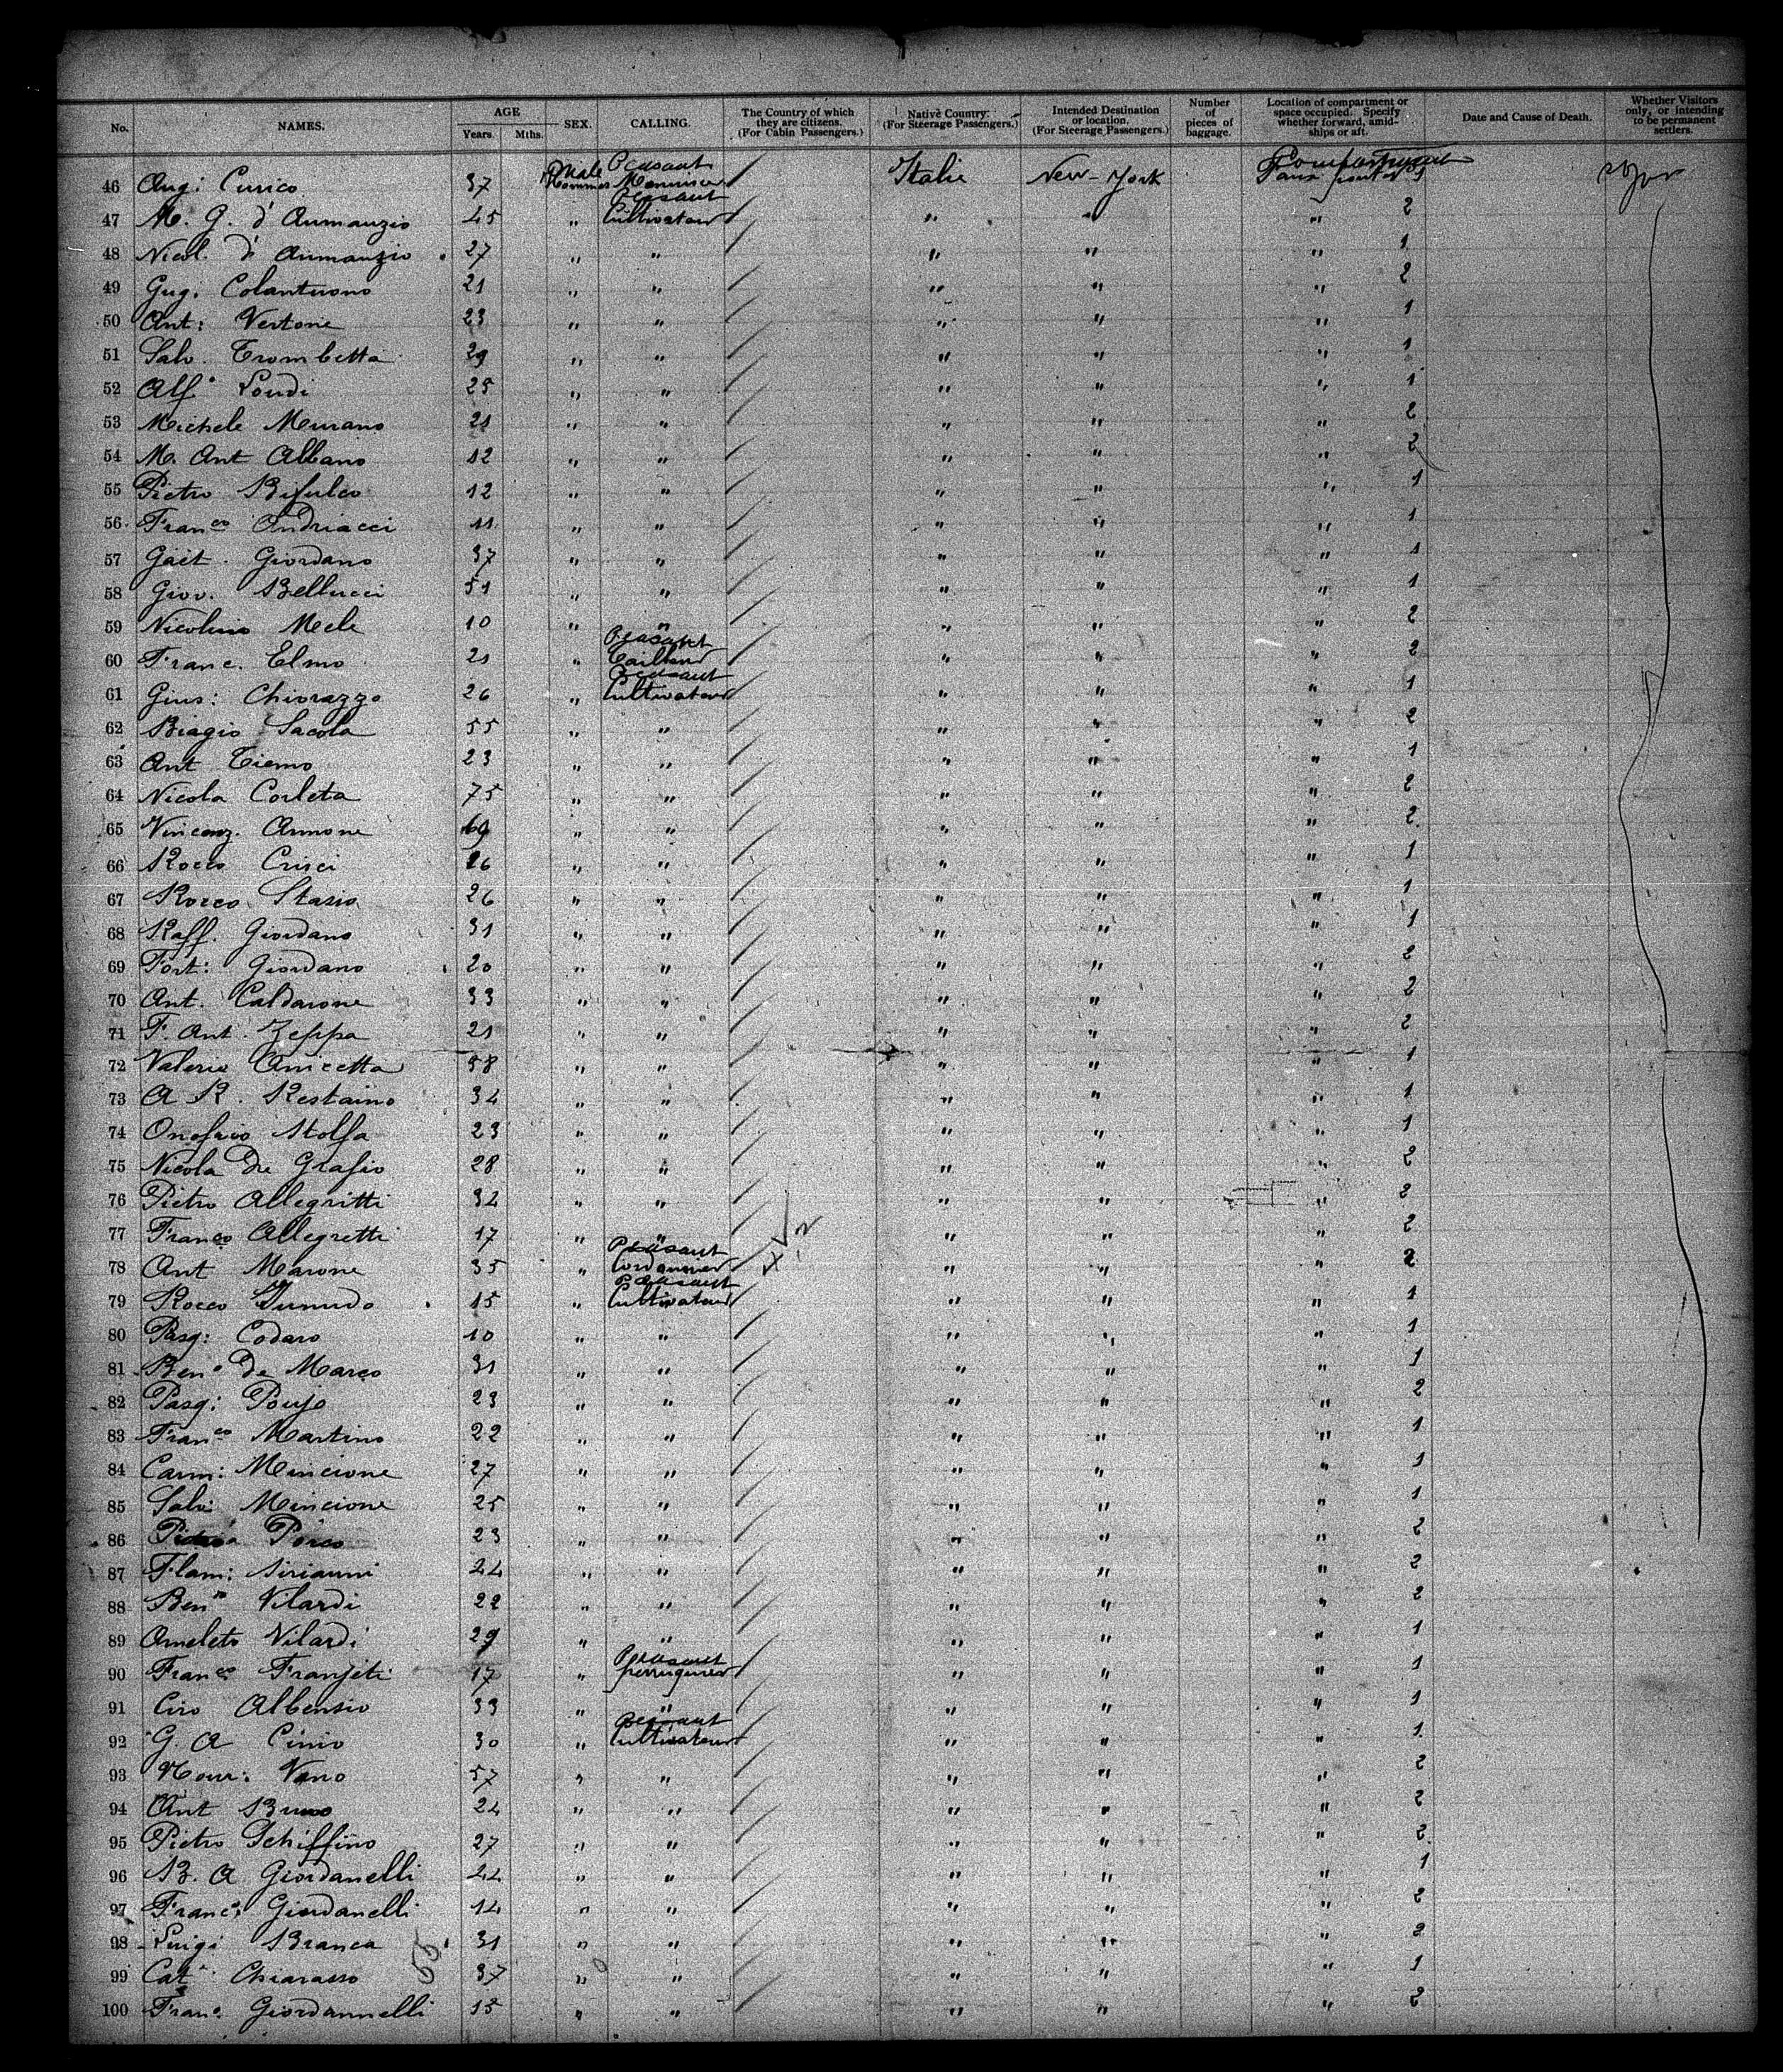 No. NAMES. AGE Years. Mths. SEX. CALLING. The Country of which they are citizens. (For Cabin Passengers.) Native Country. (For Steerage Passengers.) Intended Destination or location. (For Steerage Passengers.) Number of pieces of baggage. Location of compartment or space occupied. Specify whether forward, amidships or aft. Date and Cause of Death. Whether Visitors only, or intending to be permanent settlers.
Male Peasant Compartment
46 Ang: Curico 37 Hommes Italie New-York 1
Peasant
47 M. G. d'Aumanzio 45 " Cultivateur " " " 2
48 Nicol. d'Aumanzio 27 " " " " " 1
49 Gug: Colantuono 21 " " " " " 2
50 Ant: Vertone 23 " " " " " 1
51 Salv. Trombetta 29 " " " " " 1
52 Alf. Londi 25 " " " " " 1
53 Michele Murano 21 " " " " " 2
54 M. Ant Albano 12 " " " " " 2
55 Pietro Bifulco 12 " " " " " 1
56 Franco Andriacci 11 " " " " " 1
57 Gaet. Giordano 37 " " " " " 1
58 Giov. Bellucci 51 " " " " " 1
59 Nicolino Mele 10 " " " " " 2
Peasant
60 Franc. Elmo 21 " Tailleur " " " 2
Peasant
61 Gius: Chiorazzo 26 " Cultivateur " " " 1
62 Biagio Sacola 55 " " " " " 2
63 Ant Tiemo 23 " " " " " 1
64 Nicola Corleta 75 " " " " " 2
65 Vincenz. Annone 69 " " " " " 2
66 Rocco Crisci 26 " " " " " 1
67 Rocco Stasio 26 " " " " " 1
68 Raff. Giordano 31 " " " " " 1
69 Fort: Giordano 20 " " " " " 2
70 Ant. Caldarone 33 " " " " " 2
71 F. Ant. Zeppa 21 " " " " " 2
72 Valerio Anicetta 58 " " " " " 1
73 A R. Restaino 34 " " " " " 1
74 Onofrio Stolfa 23 " " " " " 1
75 Nicola De Grafio 28 " " " " " 2
76 Pietro Allegritti 32 " " " " " 2
77 Franco Allegretti 17 " " " " " 2
Peasant
78 Ant Marone 35 " Cordonnier " " " 2
Peasant
79 Rocco 15 " Cultivateur " " " 1
80 Pasq: Codaro 10 " " " " " 1
81 Beno de Marco 31 " " " " " 1
82 Pasq: 23 " " " " " 2
83 Franco Martino 22 " " " " " 1
84 Carm: Mincione 27 " " " " " 1
85 Salv: Mincione 25 " " " " " 1
86 Porco 23 " " " " " 2
87 Flam: Sirianni 24 " " " " " 2
88 Beno Vilardi 22 " " " " " 2
89 Ameleto Vilardi 29 " " " " " 1
Peasant
90 Franco Franjeti 17 " perruquier " " " 1
91 Ciro Albensio 33 " " " " " 1
Peasant
92 G. A Cinio 30 " Cultivateur " " " 1
93 Vano 57 " " " " " 2
94 Ant Bruno 24 " " " " " 2
95 Pietro Schiffino 27 " " " " " 2
96 B. A Giordanelli 44 " " " " " 1
97 Franc: Giordanelli 14 " " " " " 2
98 Luigi Branca 31 " " " " " 2
99 Cat. Chiarasso 37 " " " " " 1
100 Franc. Giordannelli 15 " " " " " 2